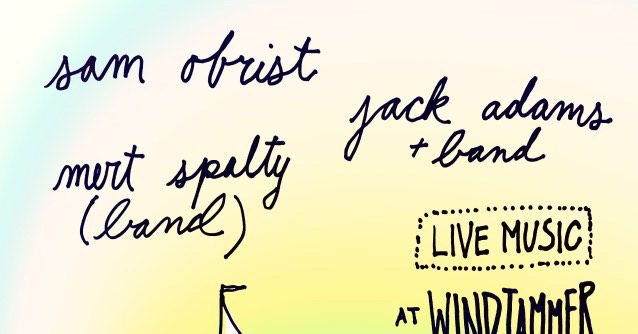 sam obrist
jack adams
+ band
mert spalty
(band)
LIVE MUSIC
AT WINDJAMMER